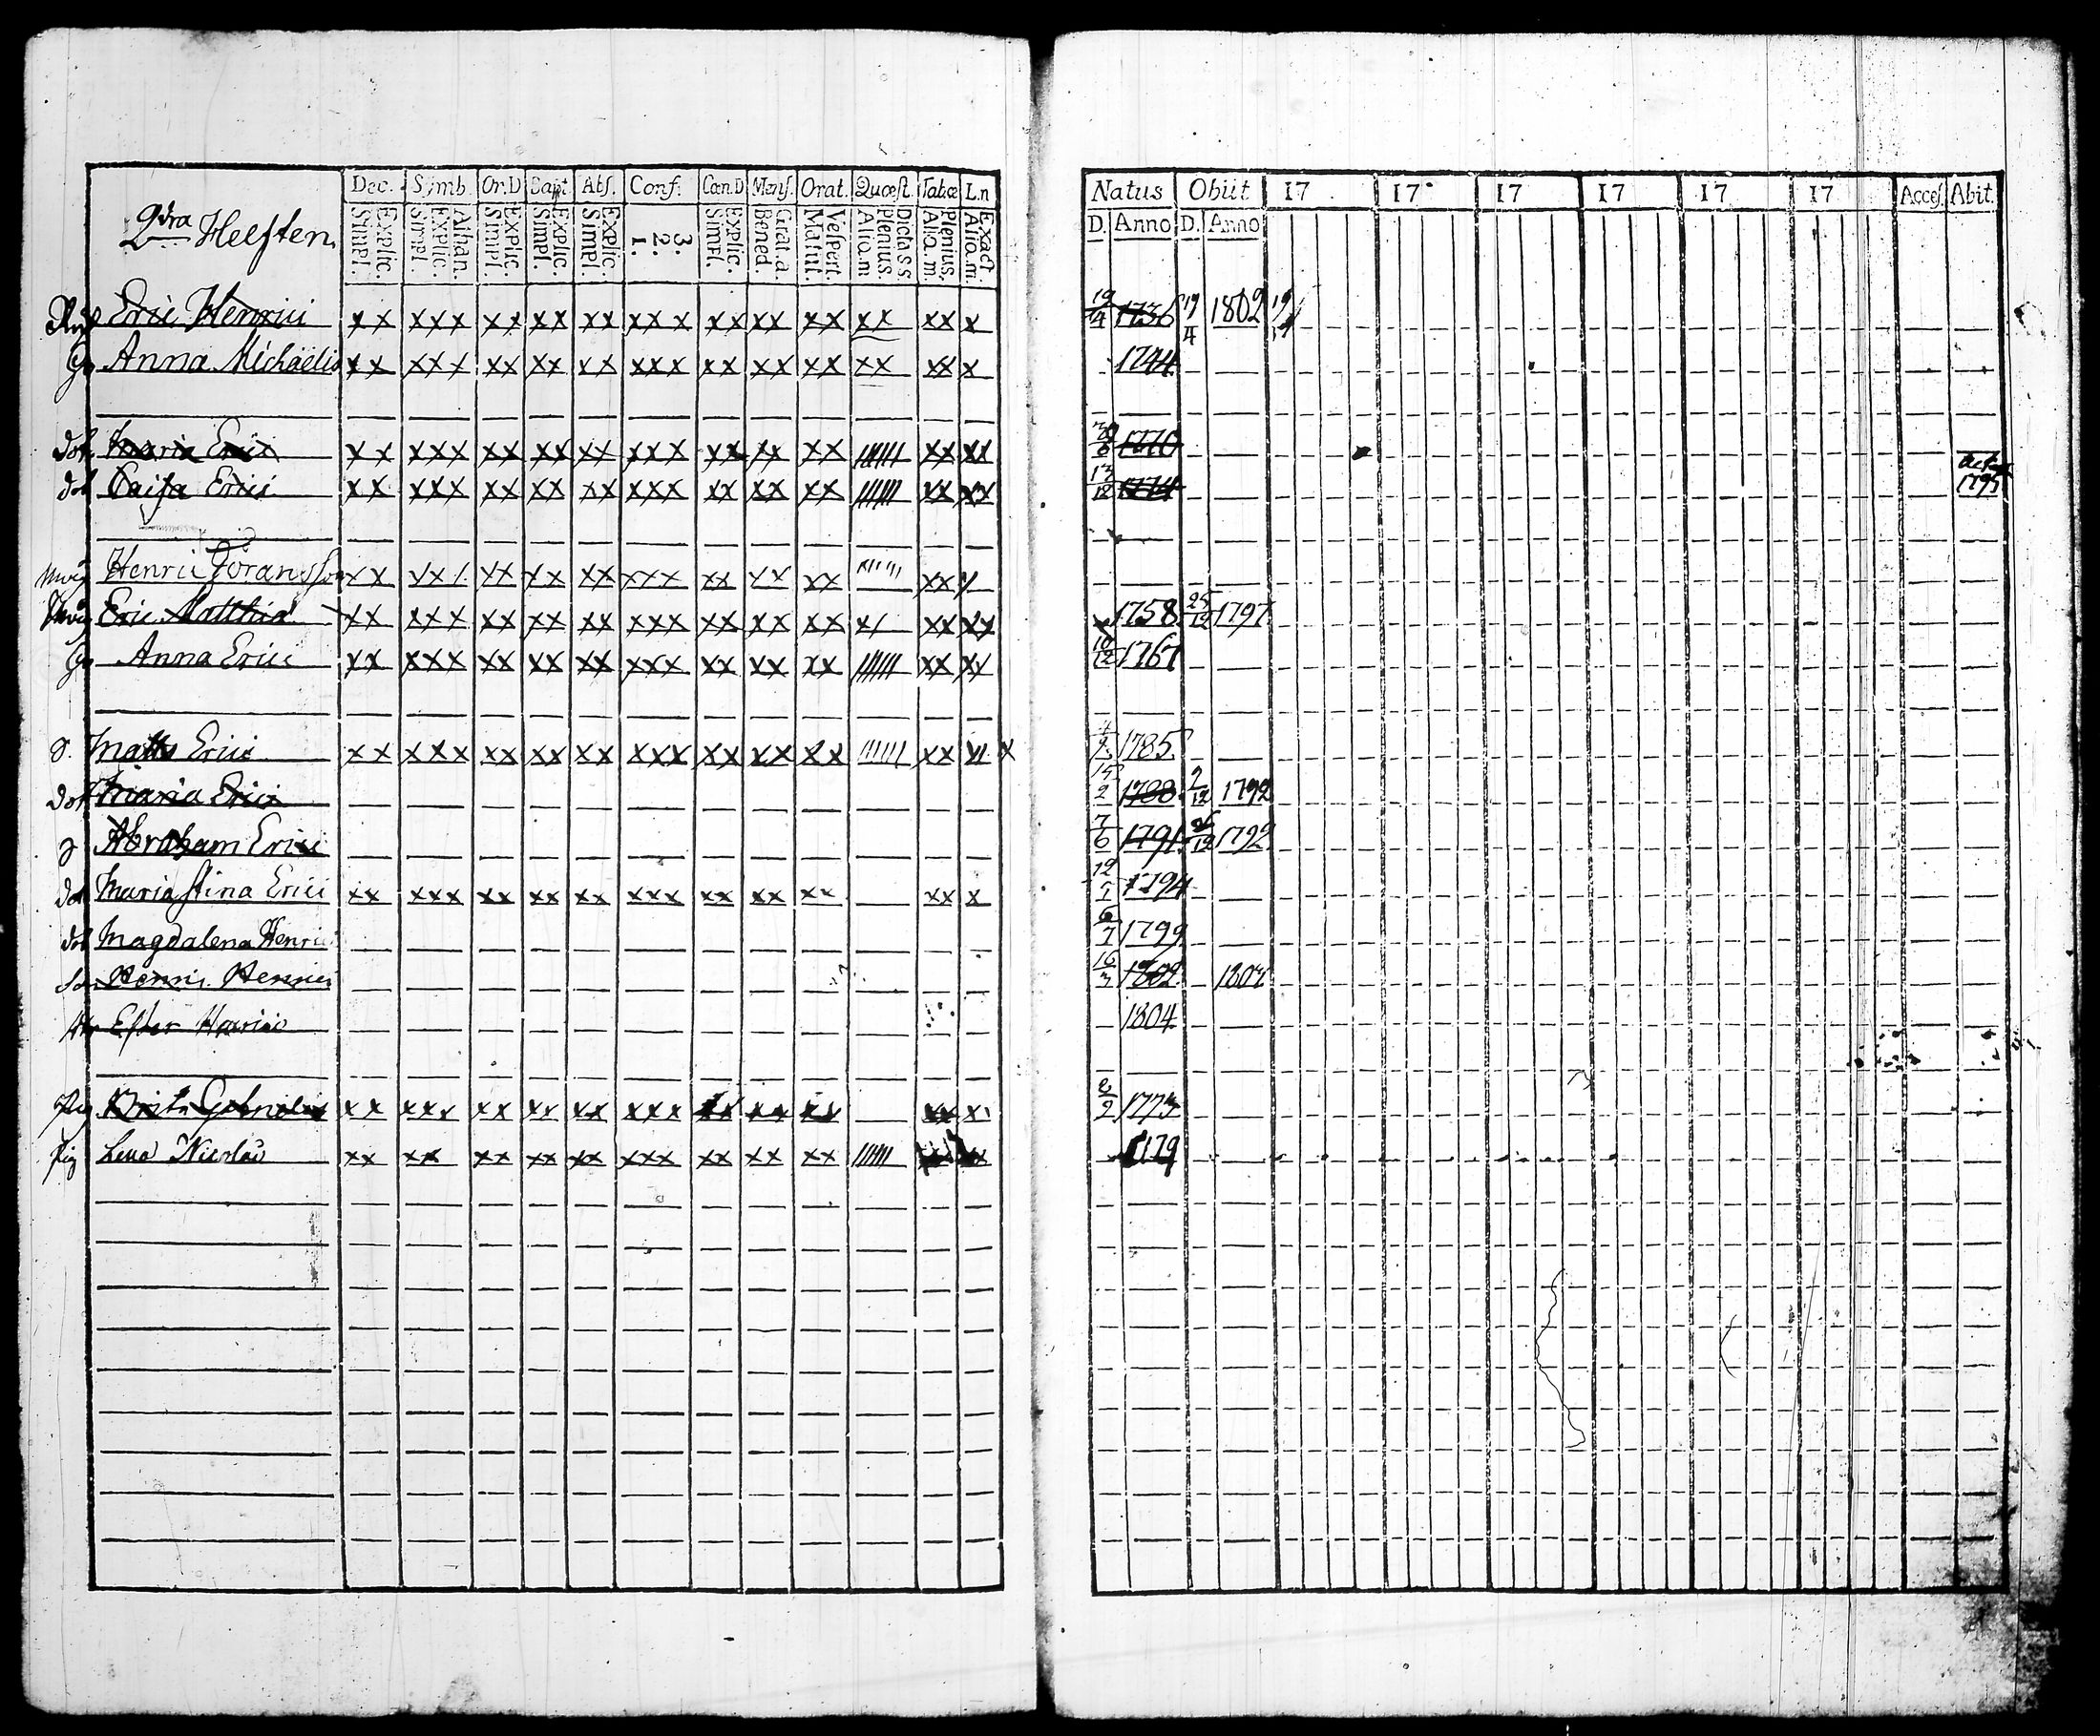 Dec. Symb. Or.D Bapt. Abs. Conf. Cœn.D Mens. Orat. Quæst. Tabæ L.n
2dra Helften.
Explic. Simpl. Athan. Explic. Simpl. Explic. Simpl. Explic. Simpl. Explic. Simpl. 3. 2. 1. Explic. Simpl. Grat.a. Bened. Vespert. Matut. Dictass Plenius. Aliq.m Plenius. Aliq.m. Exact Aliq.m.
Eric Henrici xx xxx xx xx xx xxx xx xx xx xx xx x
Anna Michaëlis xx xxx xx xx xx xxx xx xx xx xx xx x
dot. Maria Erici xx xxx xx xx xx xxx xx xx xx xx xx
dot Caisa Erici xx xxx xx xx xx xxx xx xx xx xx xx
Henric Göransson xx xxx xx xx xx xxx xx xx xx xx x
Eric Matthiæ xx xxx xx xx xx xxx xx xx xx xx xx xx
Anna Erici xx xxx xx xx xx xxx xx xx xx xx xx
Matts Erici xx xxx xx xx xx xxx xx xx xx xx xx x
dot Maria Erici
Abraham Erici
dot Maria Stina Erici xx xxx xx xx xx xxx xx xx xx xx x
dot Magdalena Henrici
Henric Henrici
Ester
Pig xx xxx xx xx xx xxx xx xx xx xx x
Pig Lena xx xx xx xx xx xxx xx xx xx
Natus Obiit 17 17 17 17 17 17 Acces. Abit.
D. Anno D. Anno
19/4 1736 19/4 1802
1744
1770
13/12 1774 1795
1758 25/12 1797
10/12 1767
1785
15/2 1788 2/12 1792
7/6 1791 1792
1794
6/7 1799
16/3 1802 180
1804
2/9 1773
179